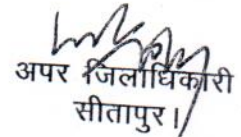 अपर जिलाधिकारी
सीतापुर।